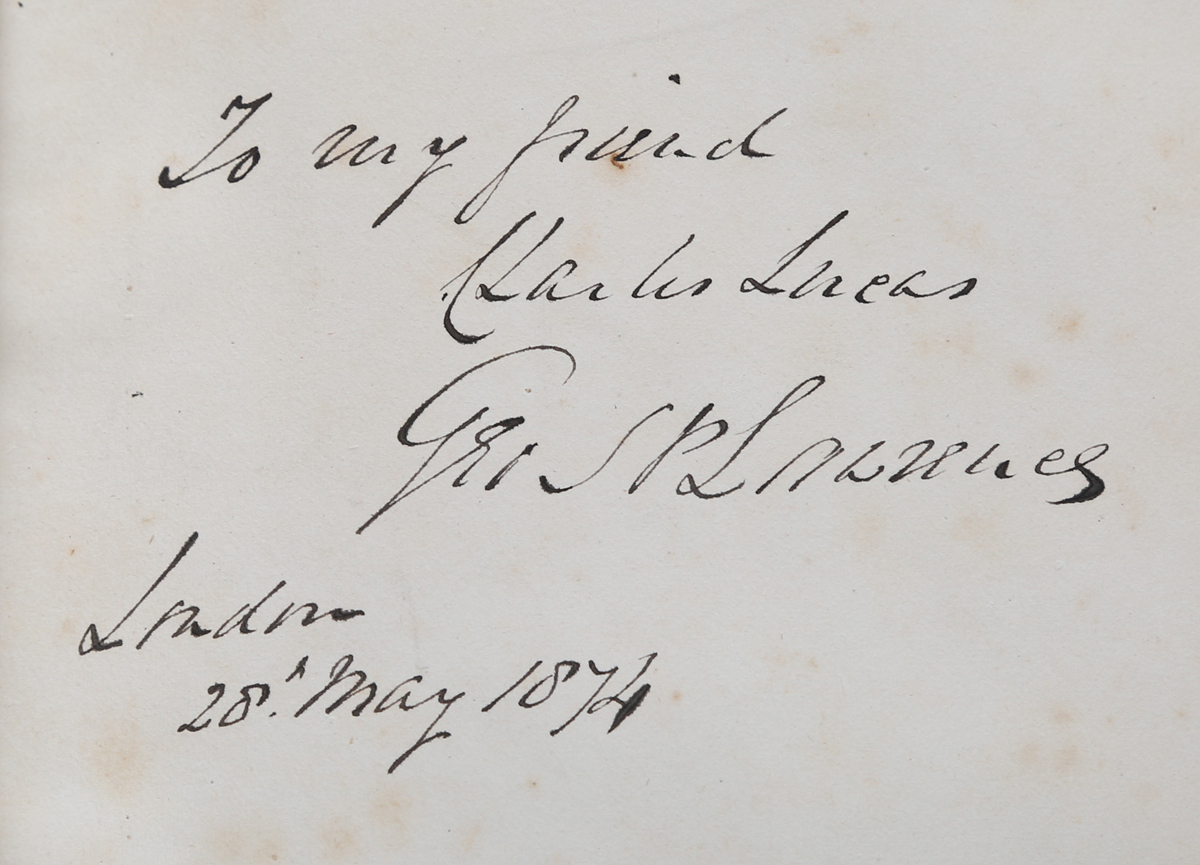 To my friend
Charles Lucas
Geo St P Lawrence
London
28th. May 1874